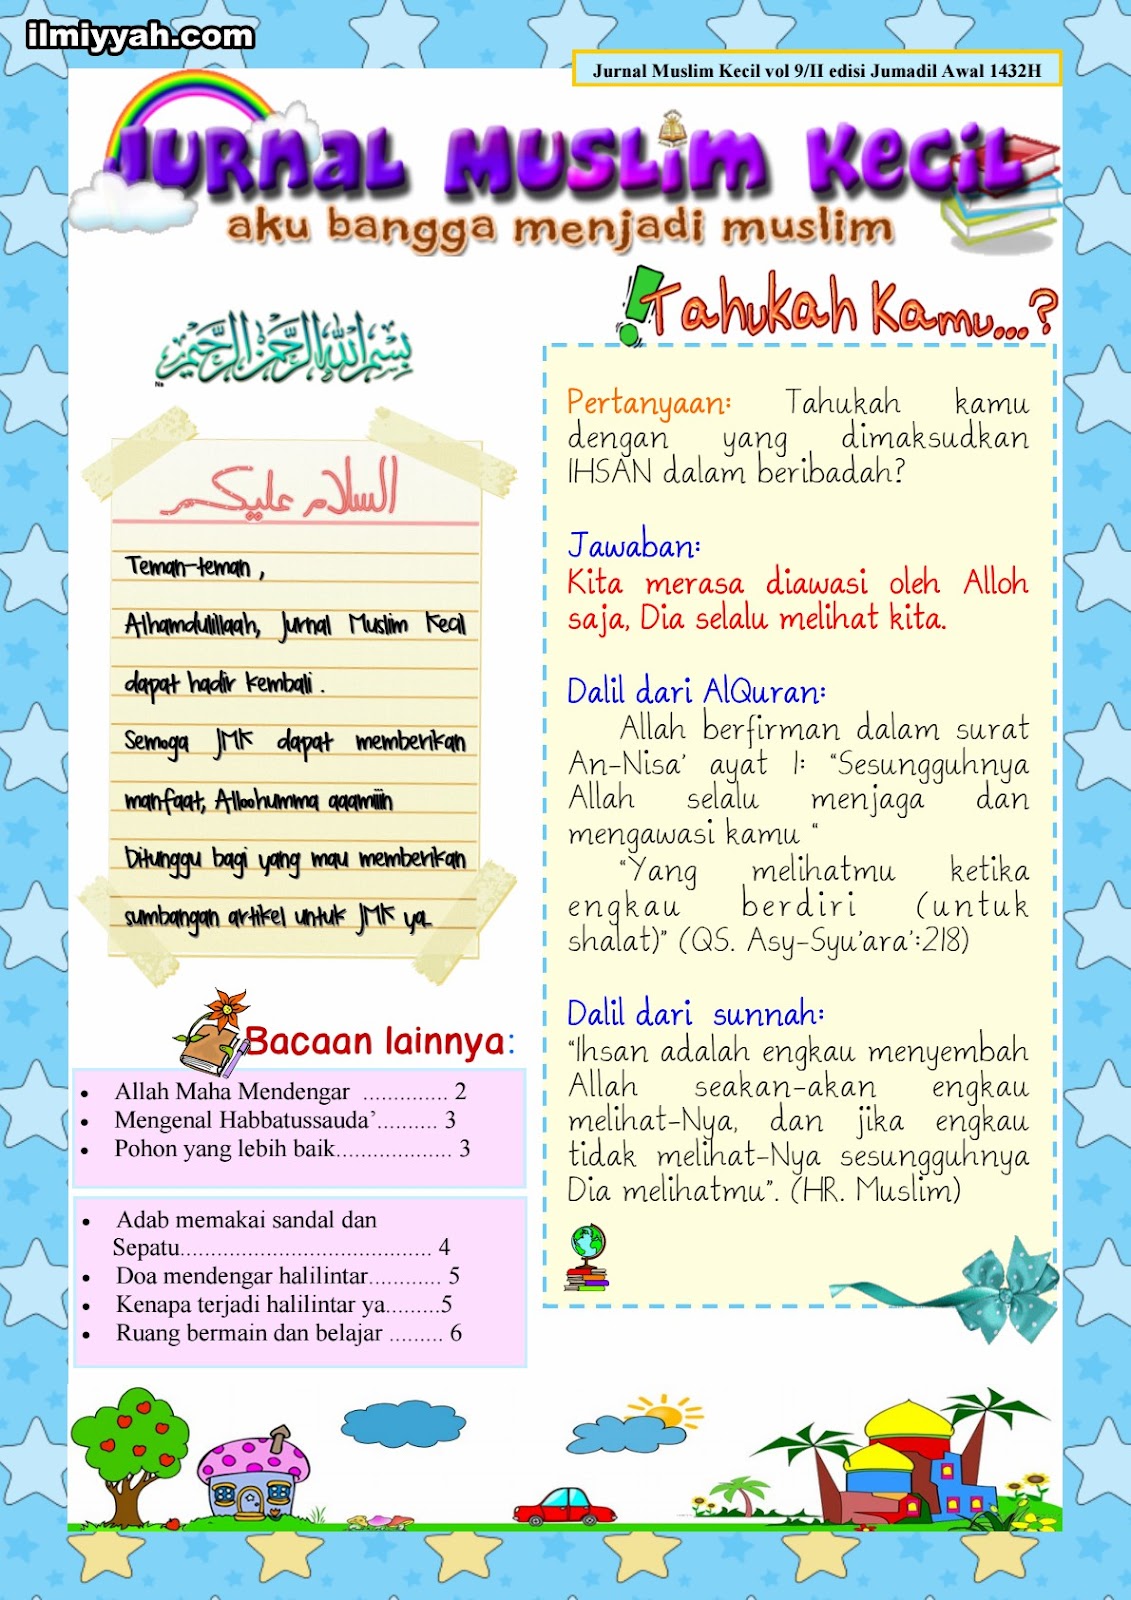 ilmiyyah.com
Jurnal Muslim Kecil vol 9/II edisi Jumadil Awal 1432H
Jurnal Muslim Kecil
aku bangga menjadi muslim
بسم الله الرحمن الرحيم
السلام عليكم
Teman-teman ,
Alhamdulillaah, Jurnal Muslim Kecil
dapat hadir kembali .
Semoga JMK dapat memberikan
manfaat, Alloohumma aaamiiin
Ditunggu bagi yang mau memberikan
sumbangan artikel untuk JMK ya..
Bacaan lainnya:
• Allah Maha Mendengar .............. 2
• Mengenal Habbatussauda’.......... 3
• Pohon yang lebih baik................... 3
• Adab memakai sandal dan
Sepatu......................................... 4
• Doa mendengar halilintar............ 5
• Kenapa terjadi halilintar ya.........5
• Ruang bermain dan belajar ......... 6
!Tahukah Kamu...?
Pertanyaan: Tahukah kamu
dengan yang dimaksudkan
IHSAN dalam beribadah?
Jawaban:
Kita merasa diawasi oleh Alloh
saja, Dia selalu melihat kita.
Dalil dari AlQuran:
Allah berfirman dalam surat
An-Nisa’ ayat 1: “Sesungguhnya
Allah selalu menjaga dan
mengawasi kamu “
“Yang melihatmu ketika
engkau berdiri (untuk
shalat)” (QS. Asy-Syu’ara’:218)
Dalil dari sunnah:
“Ihsan adalah engkau menyembah
Allah seakan-akan engkau
melihat-Nya, dan jika engkau
tidak melihat-Nya sesungguhnya
Dia melihatmu”. (HR. Muslim)